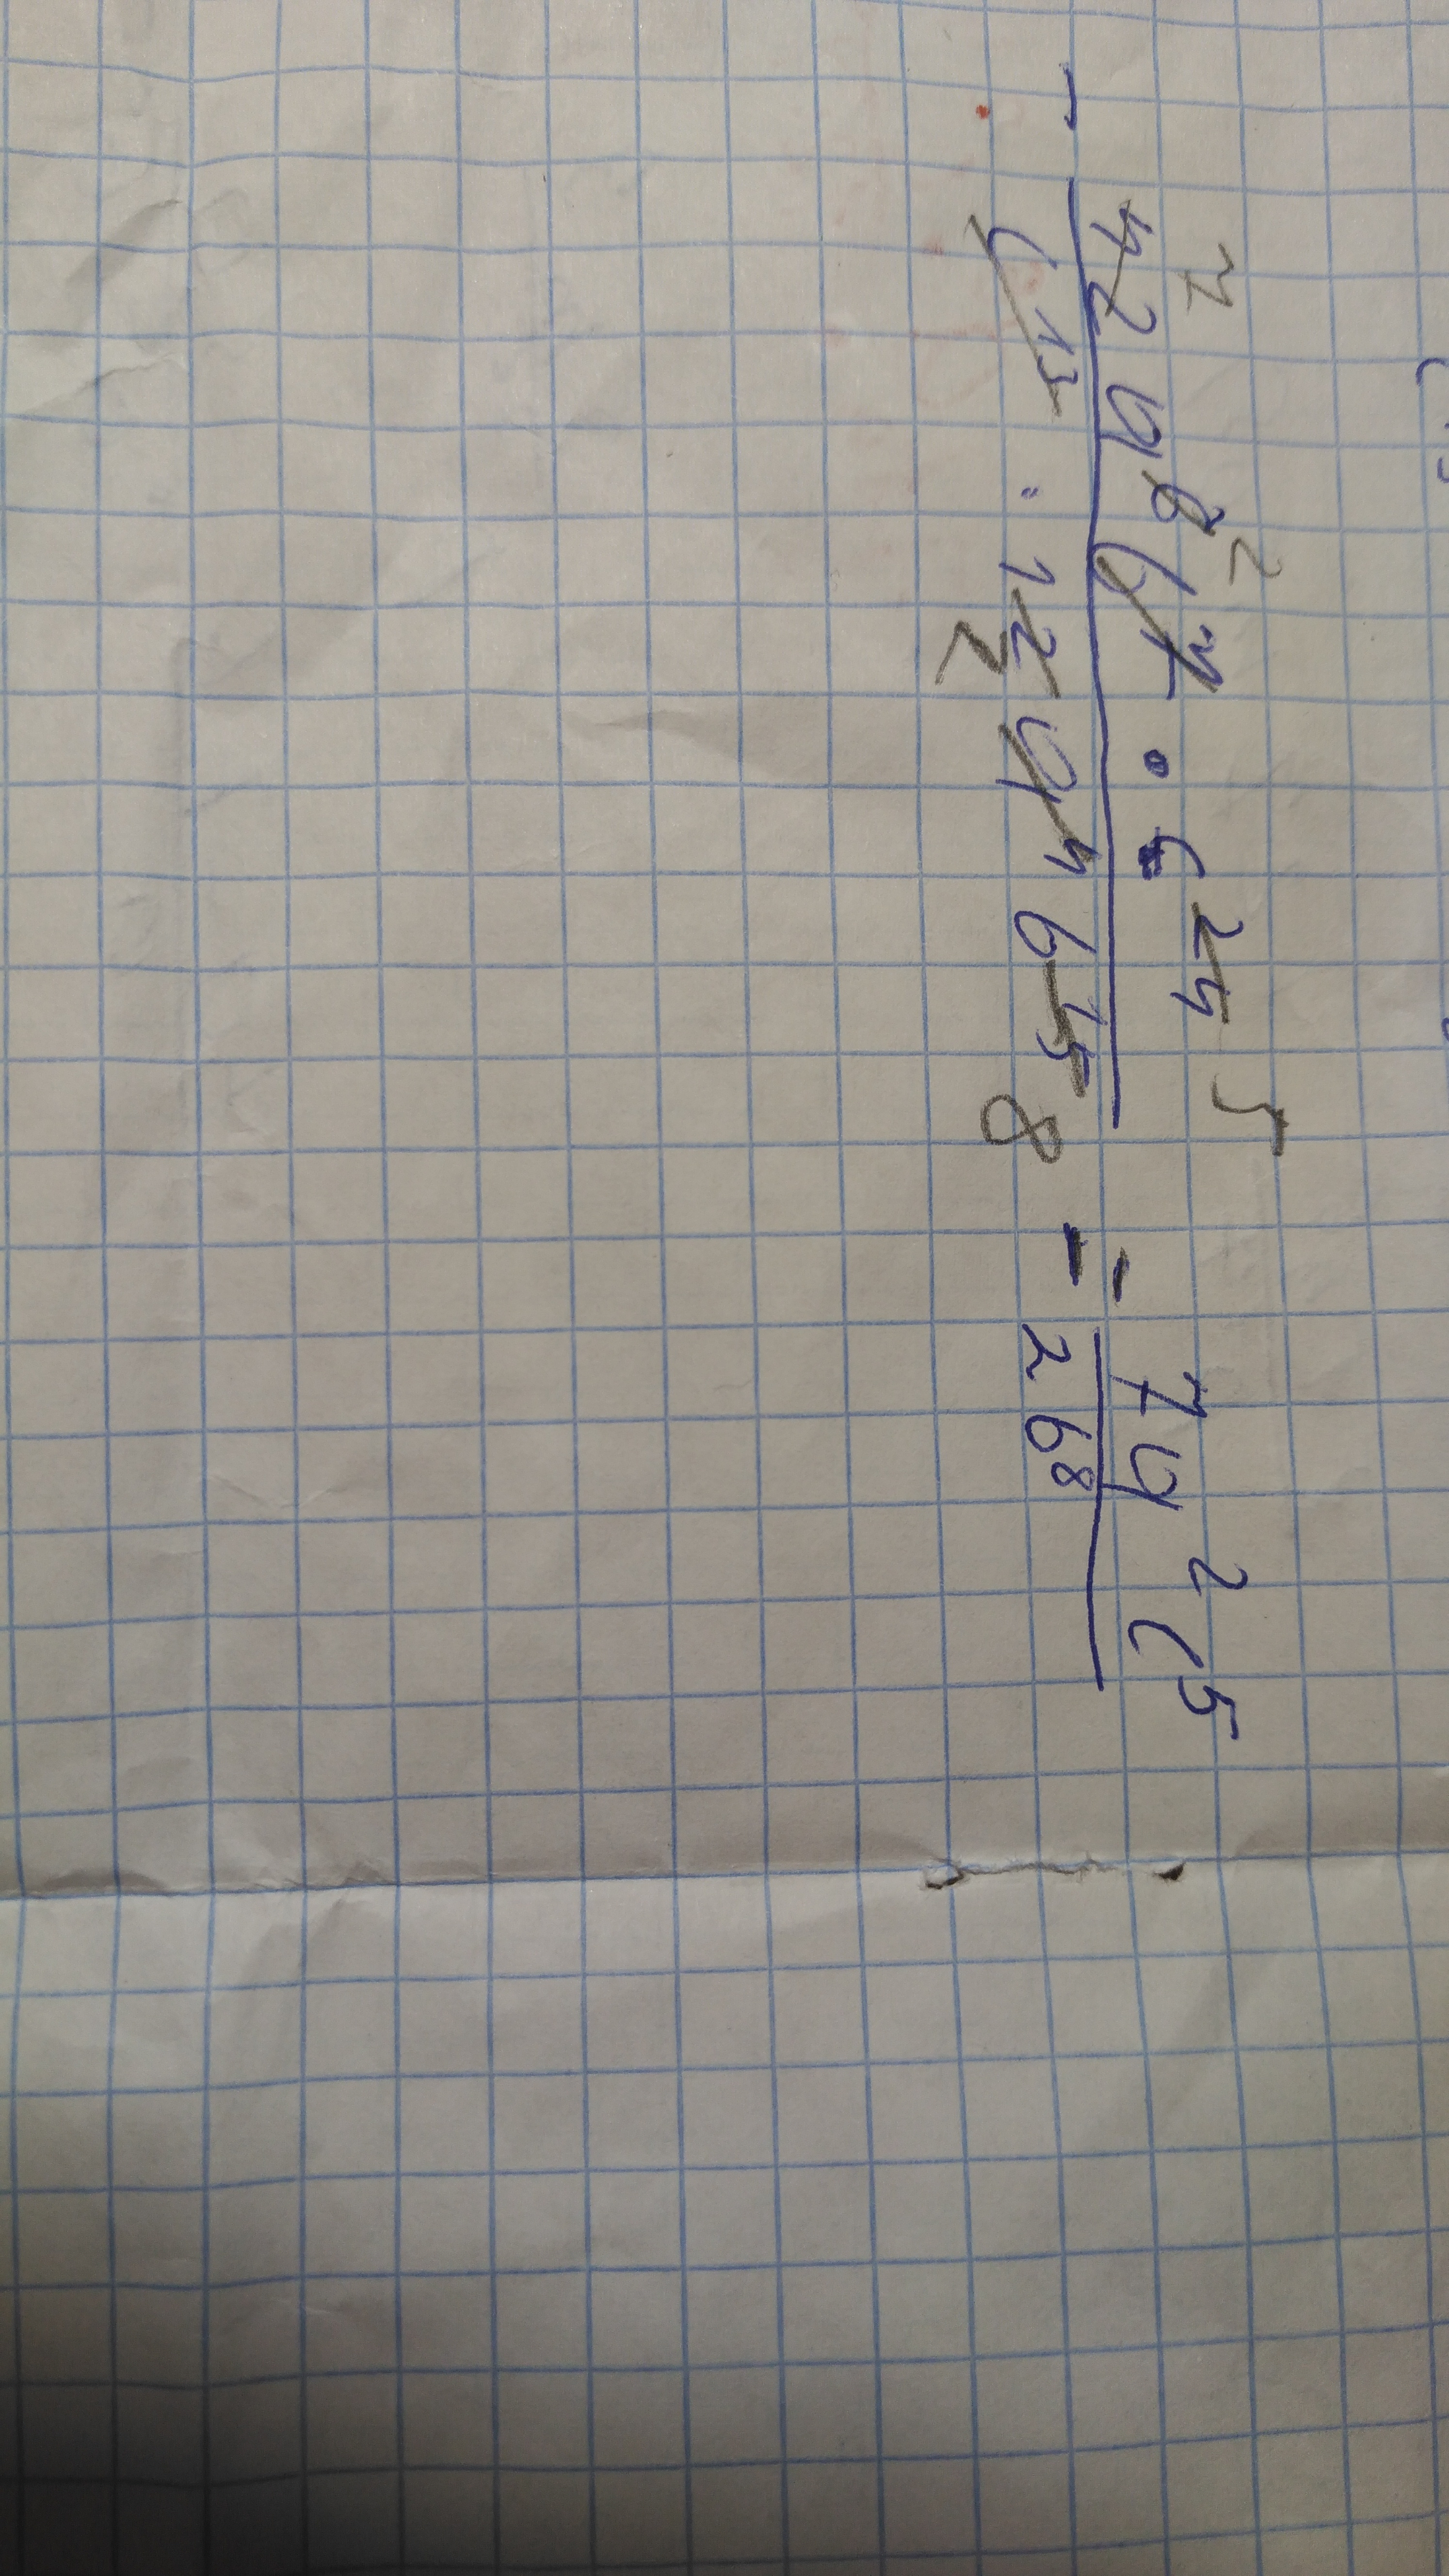 7 2 5
- 42a⁶b⁷ · c²⁴ / c¹⁹ · 12a⁴b¹⁵ = - 7a²c⁵ / 2b⁸
2 8